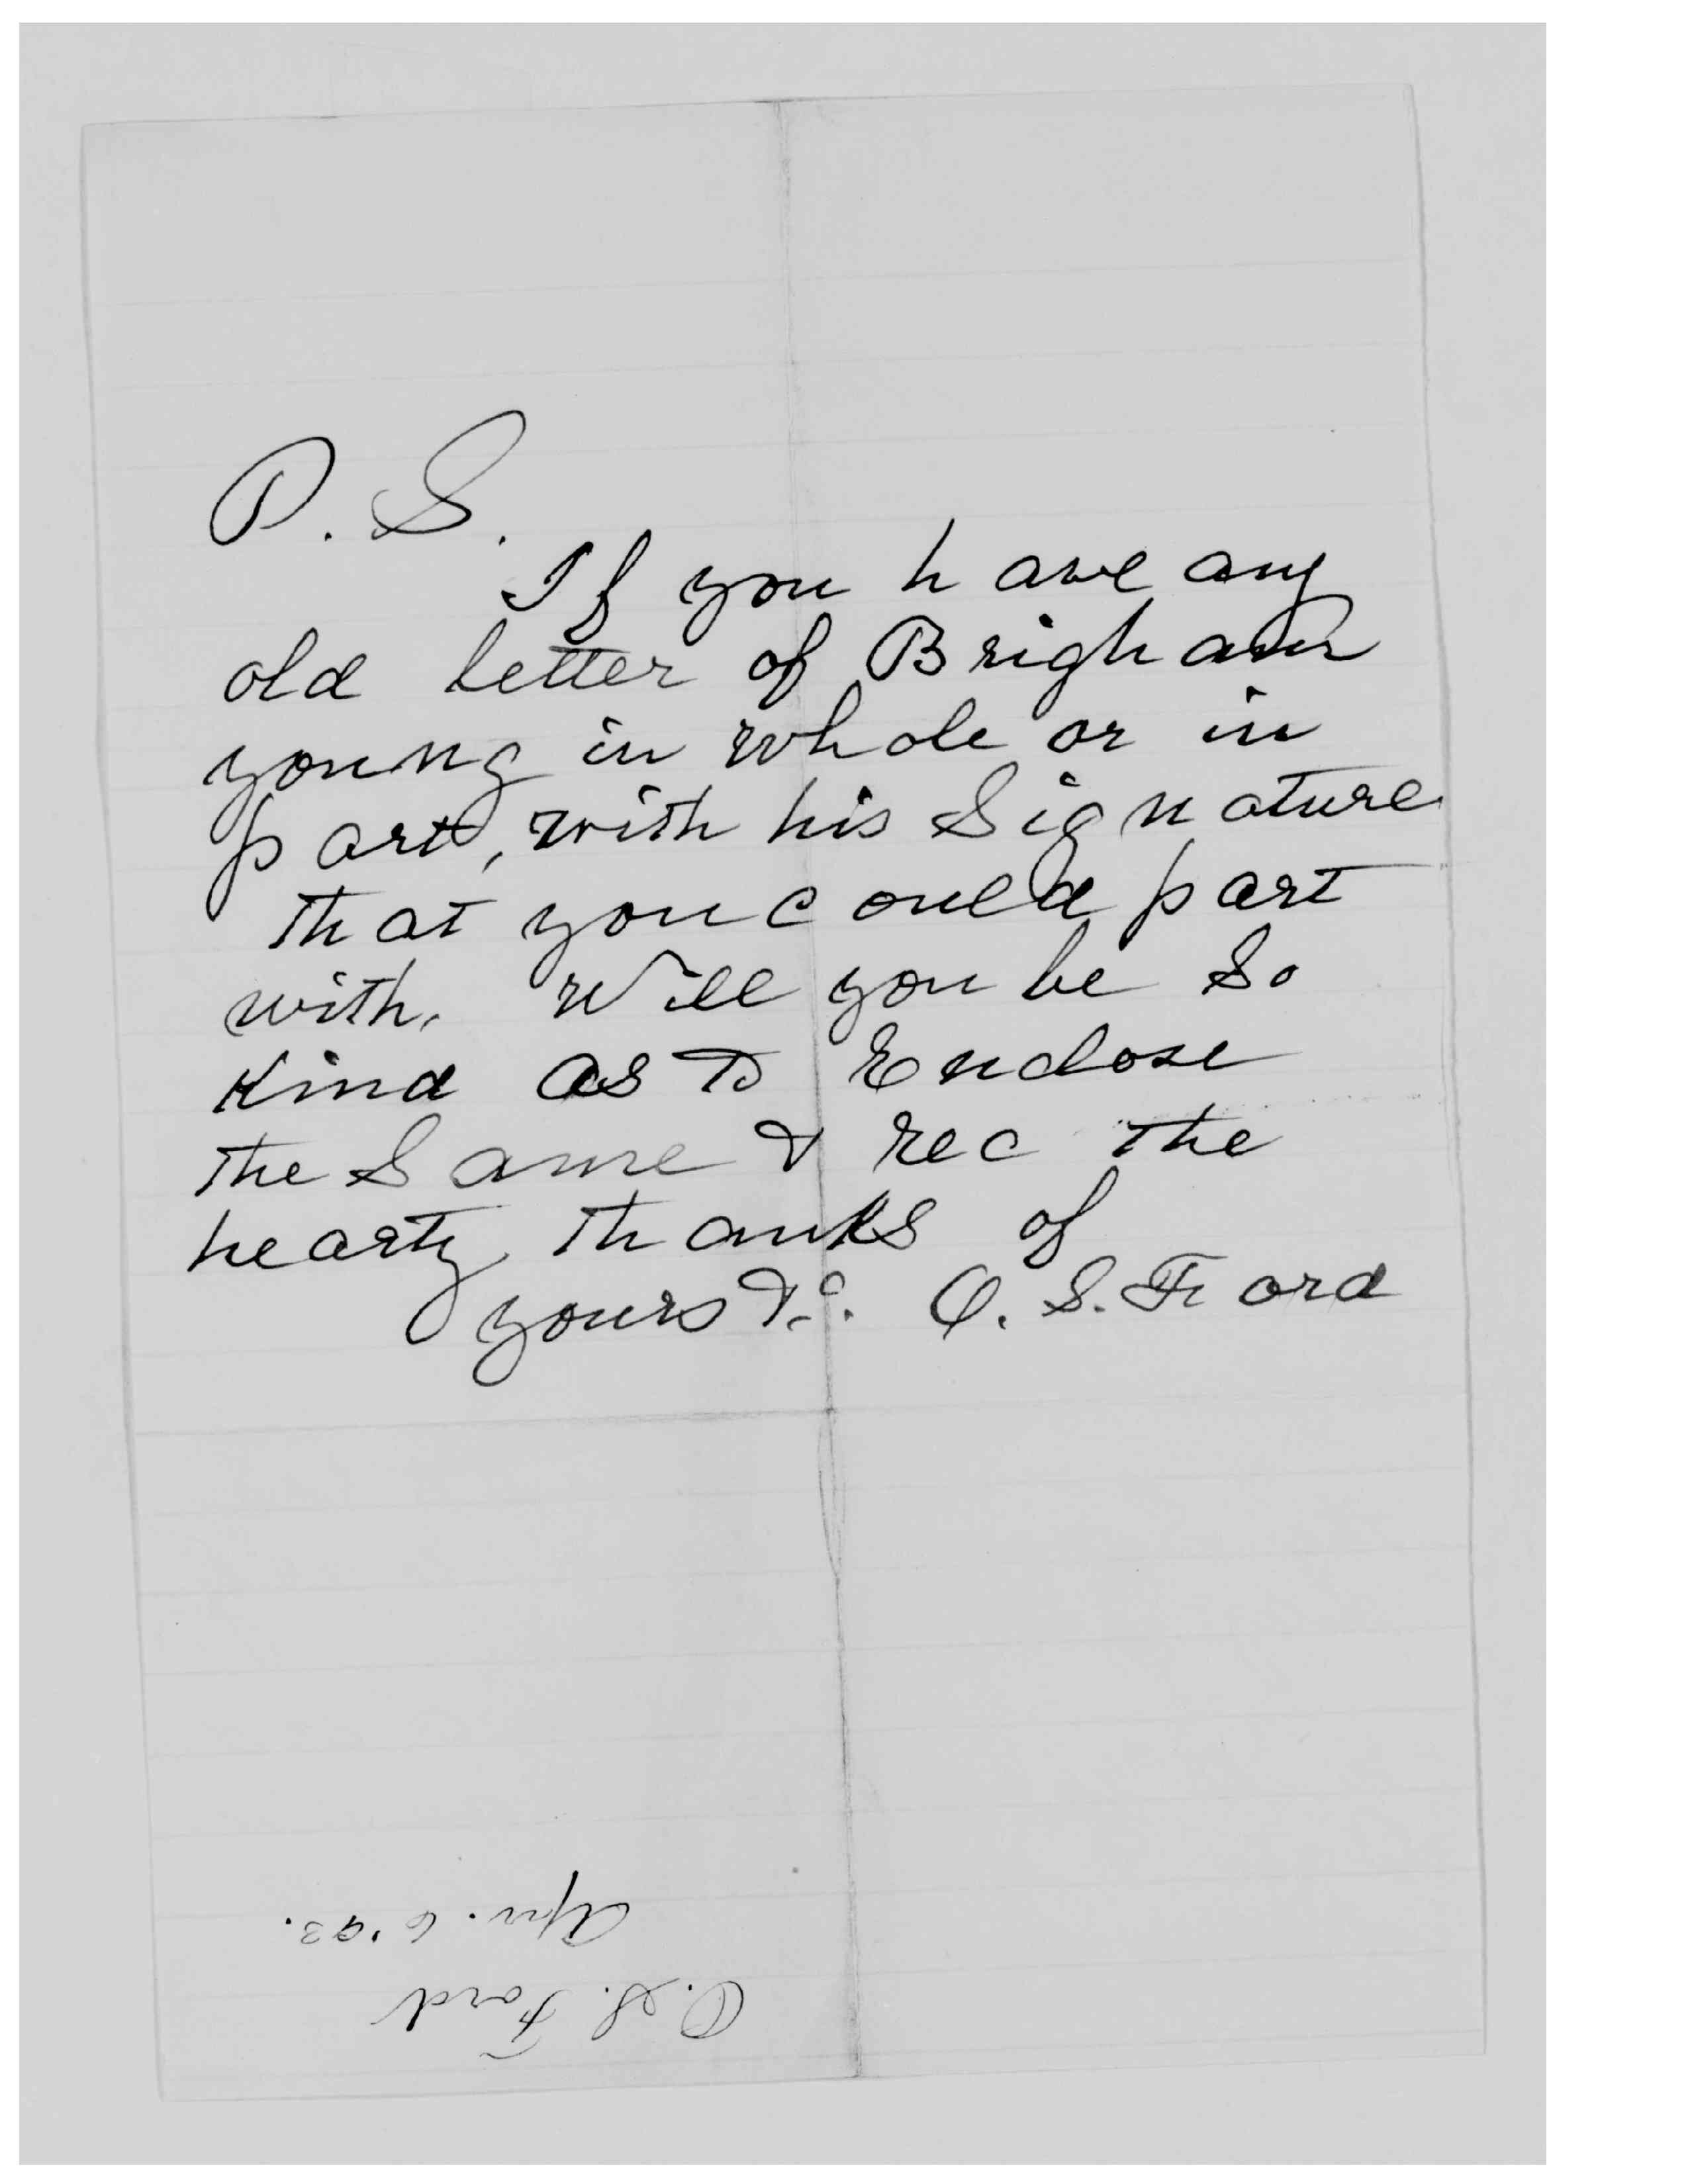 P. S.
If you have any
old letter of Brigham
young in whole or in
part, with his Signature
that you could part
with. Will you be So
Kind as to Enclose
the Same & rec the
hearty thanks of
yours &c. O. S. Ford
O. S. Ford
Apr. 6 '93.